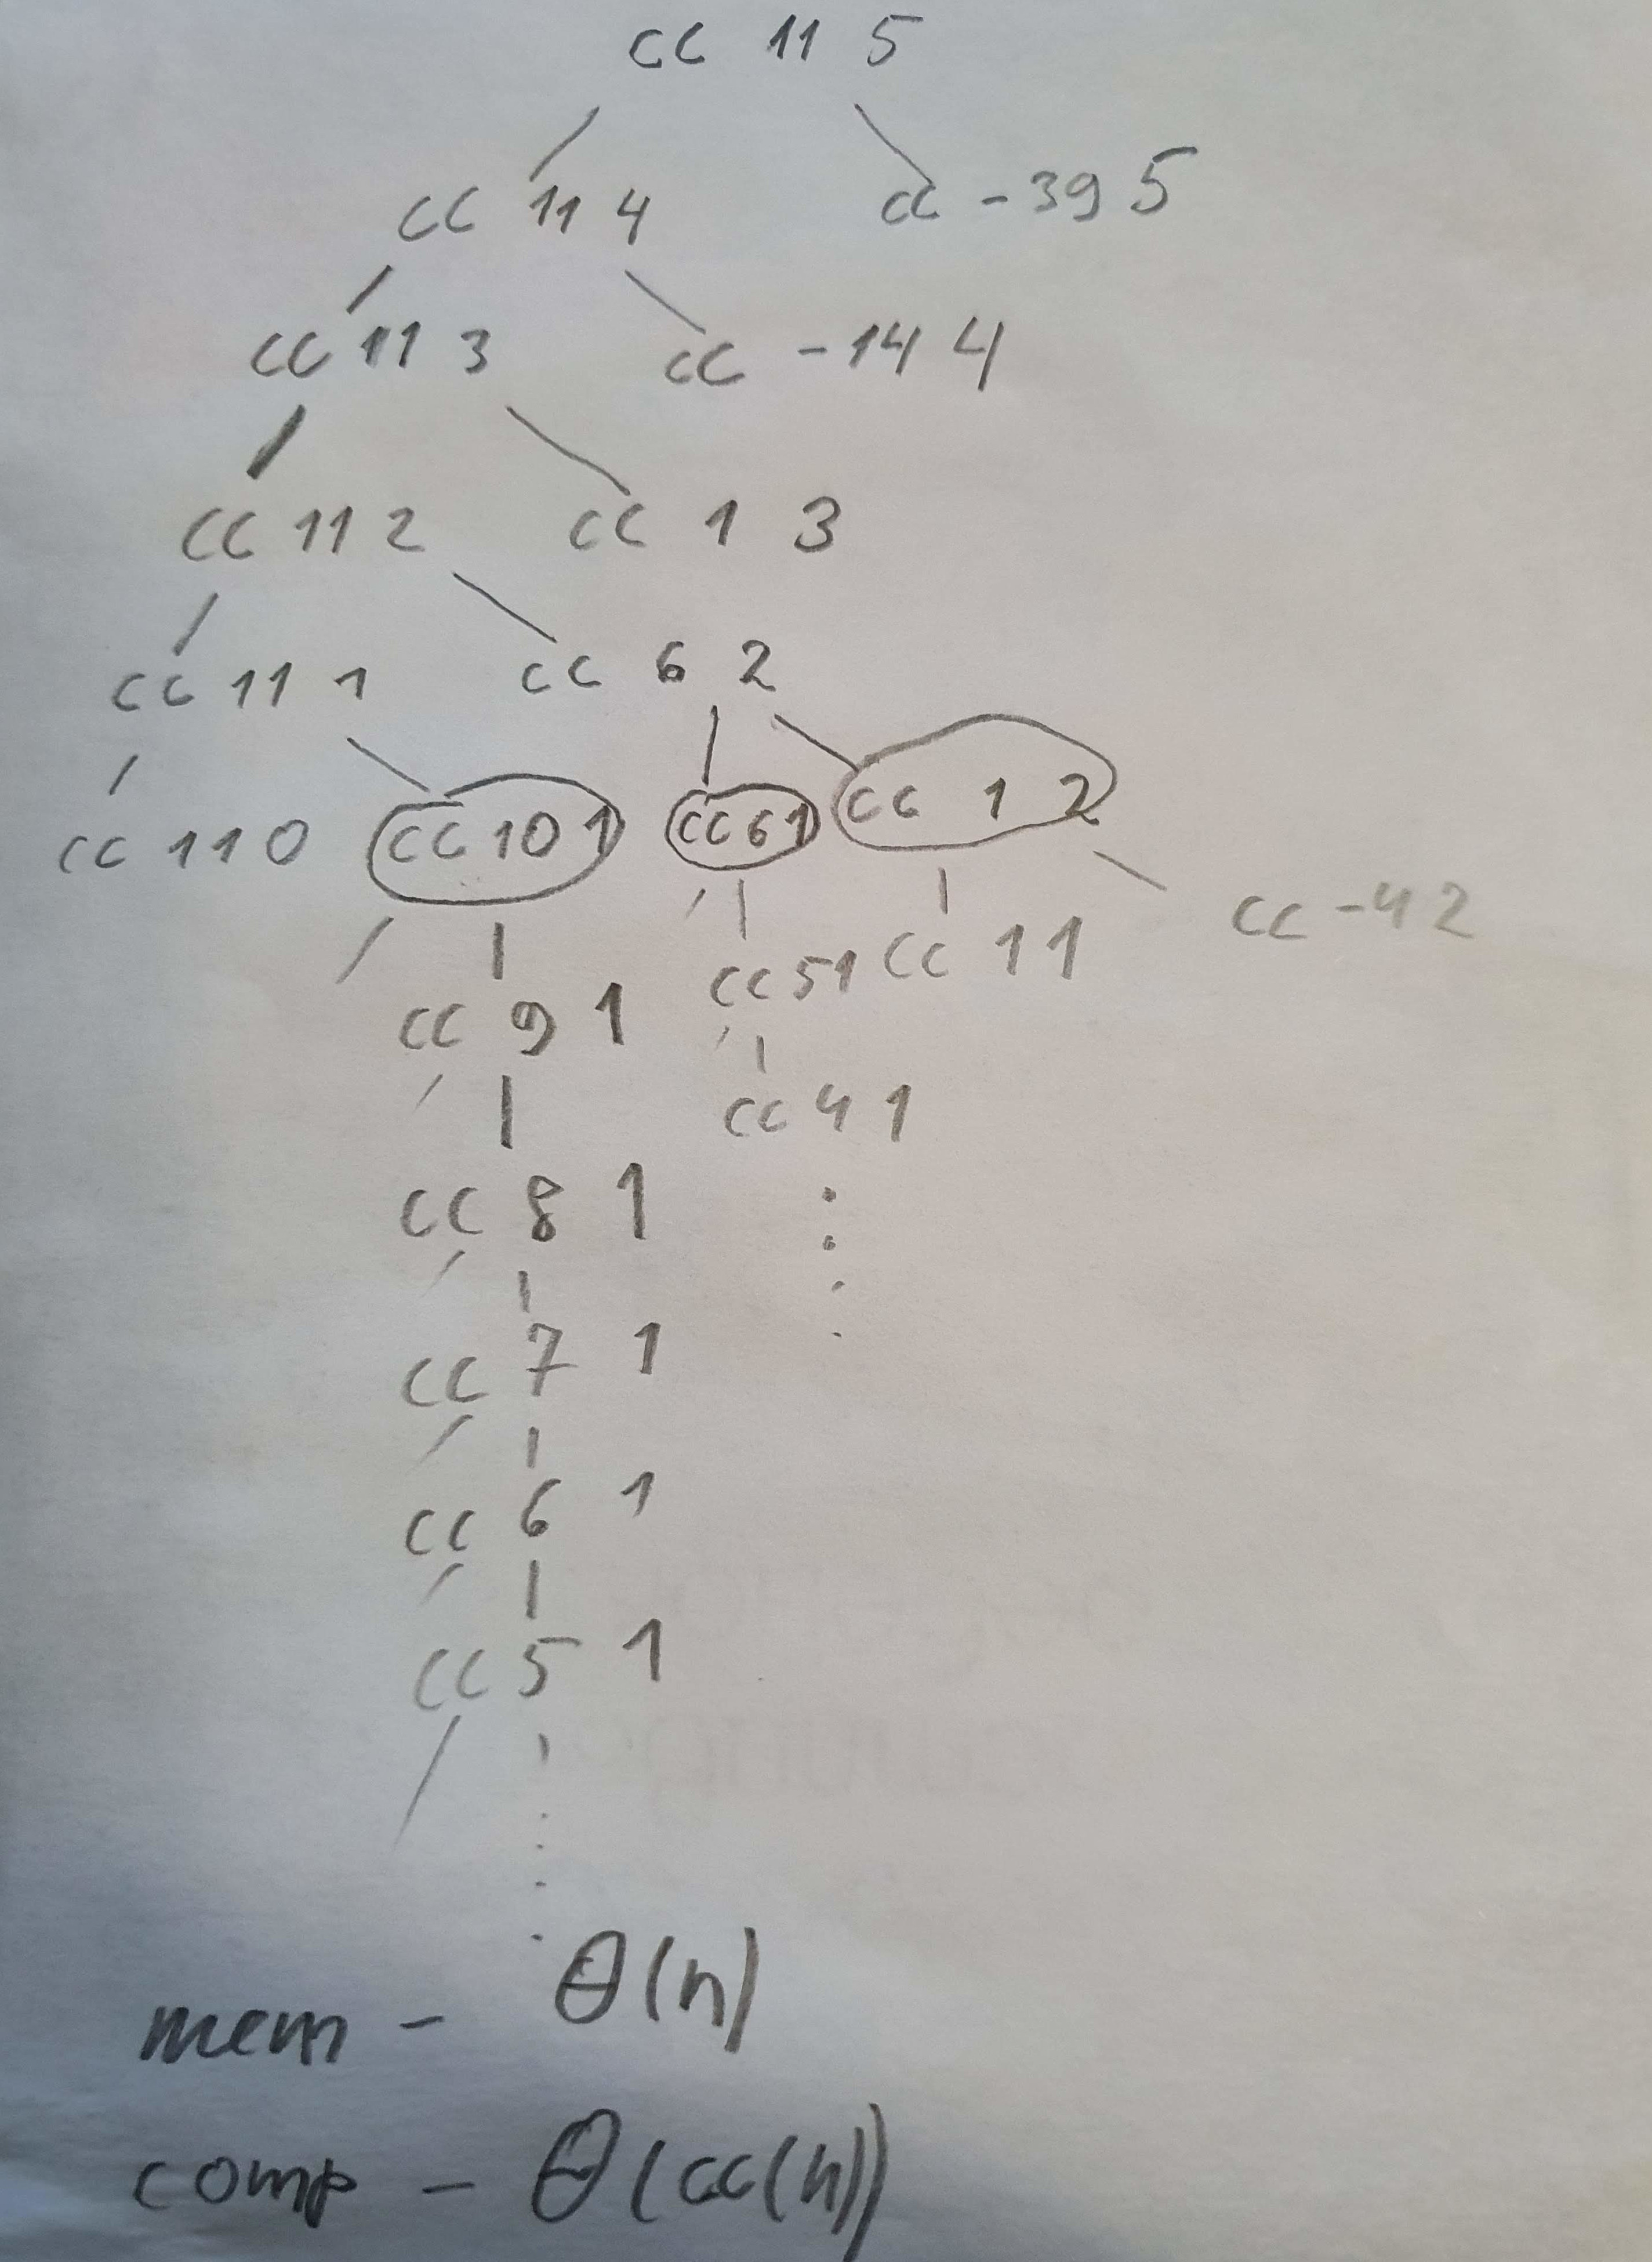 cc 11 5
cc 11 4 cc -39 5
cc 11 3 cc -14 4
cc 11 2 cc 1 3
cc 11 1 cc 6 2
cc 11 0 cc 10 1 cc 6 1 cc 1 2
cc 9 1 cc 5 1 cc 1 1 cc -4 2
cc 8 1 cc 4 1
cc 7 1
cc 6 1
cc 5 1
mem - Θ(n)
comp - Θ(cc(n))